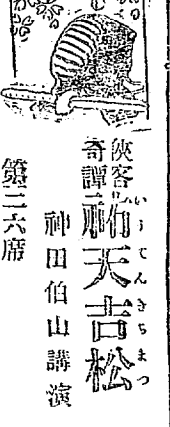 俠客奇譚祐天吉松
いうてんきちまつ
神田伯山講演
第二六席